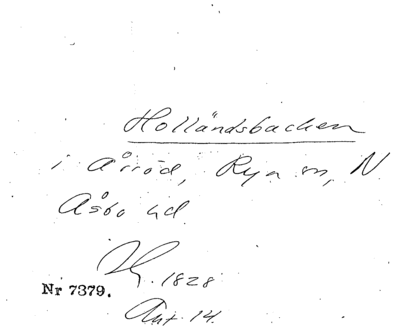 Holländsbacken
i Årröd, Rya sn, N
Åsbo hd.
1828
Nr 7379.
Akt 14.